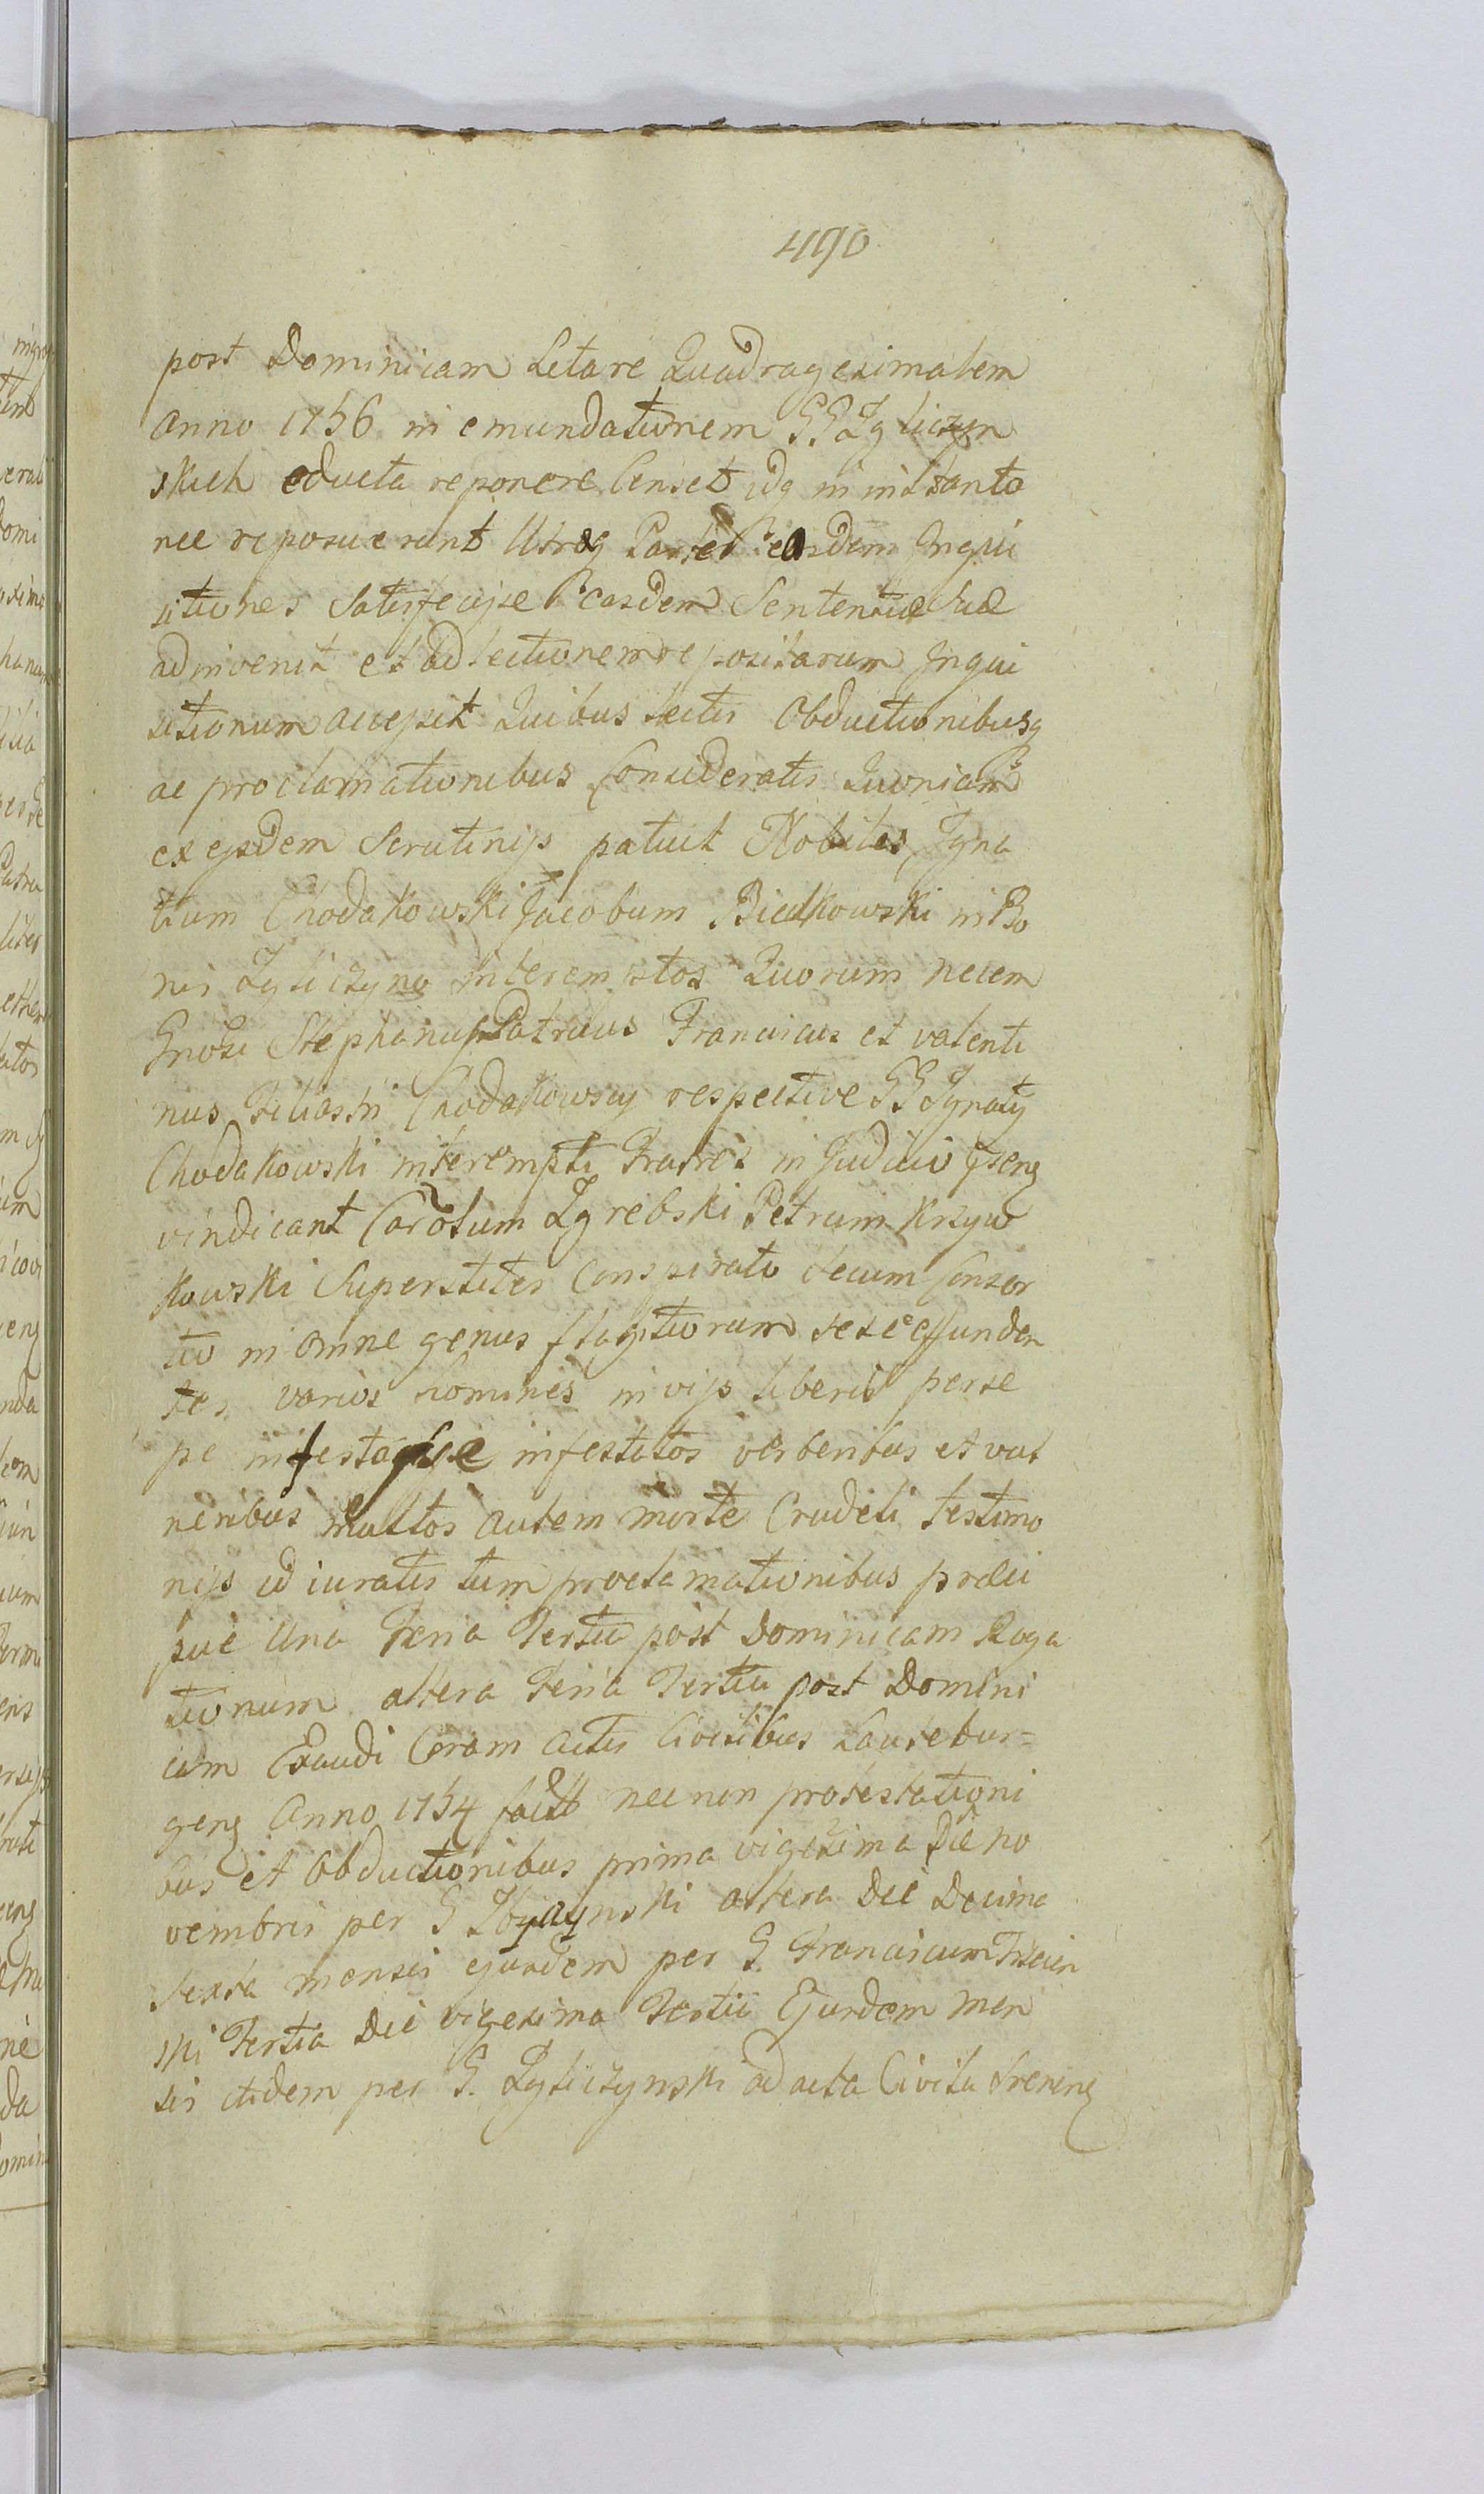 490
post Dominicam Letare Quadragesimalem
Anno 1756 in emundationem GG Zgliczyn
skich educta reponere Censet idq in instanto
nec reposuerunt Utraq Partes easdem Inqui
sitiones Satisfecisse easdem Sententiæ Suæ
adinvenit et ad lectionem repositarum Inqui
sitionum accepit Quibus lectis Obductionibusq
ac proclamationibus Consideratis Quoniam
ex ejsdem Scrutinijs patuit Nobiles, Igna
tium Chodakowski Jacobum Bielkowski in Bo
nis Zgliczyno interemptos Quorum necem
Gnosi Stephanus Patruus Franciscus et valenti
nus Chodakowscy respective GG Ignatij
Chodakowski interempti Fratres in Judicio
vindicant Carolum Zgrebski Petrum Krzyw
kowski Superstites Conspirato secum Consor
tio in omne genus flagitiorum sese effunden
tes varios homines in vijs liberis perse
pe infestasse infestatos verberibus et vul
neribus multos autem morte Crudeli testimo
nijs id iuratis tum proclamationibus præci
pue Una Feria Tertia post Dominicam Roga
tionum altera Feria Tertia post Domini
cam Exaudi Coram actis Civilibus Lautebur=
geng Anno 1754 nec non protestationi
bus et Obductionibus prima vigesima Die no
vembris per G altera Die Decima
Sexta mensis ejusdem per G. Franciscum
ski Tertia Die vigesima Tertii Ejusdem men
sis itidem per G. Zgliczynski ad acta Civilia